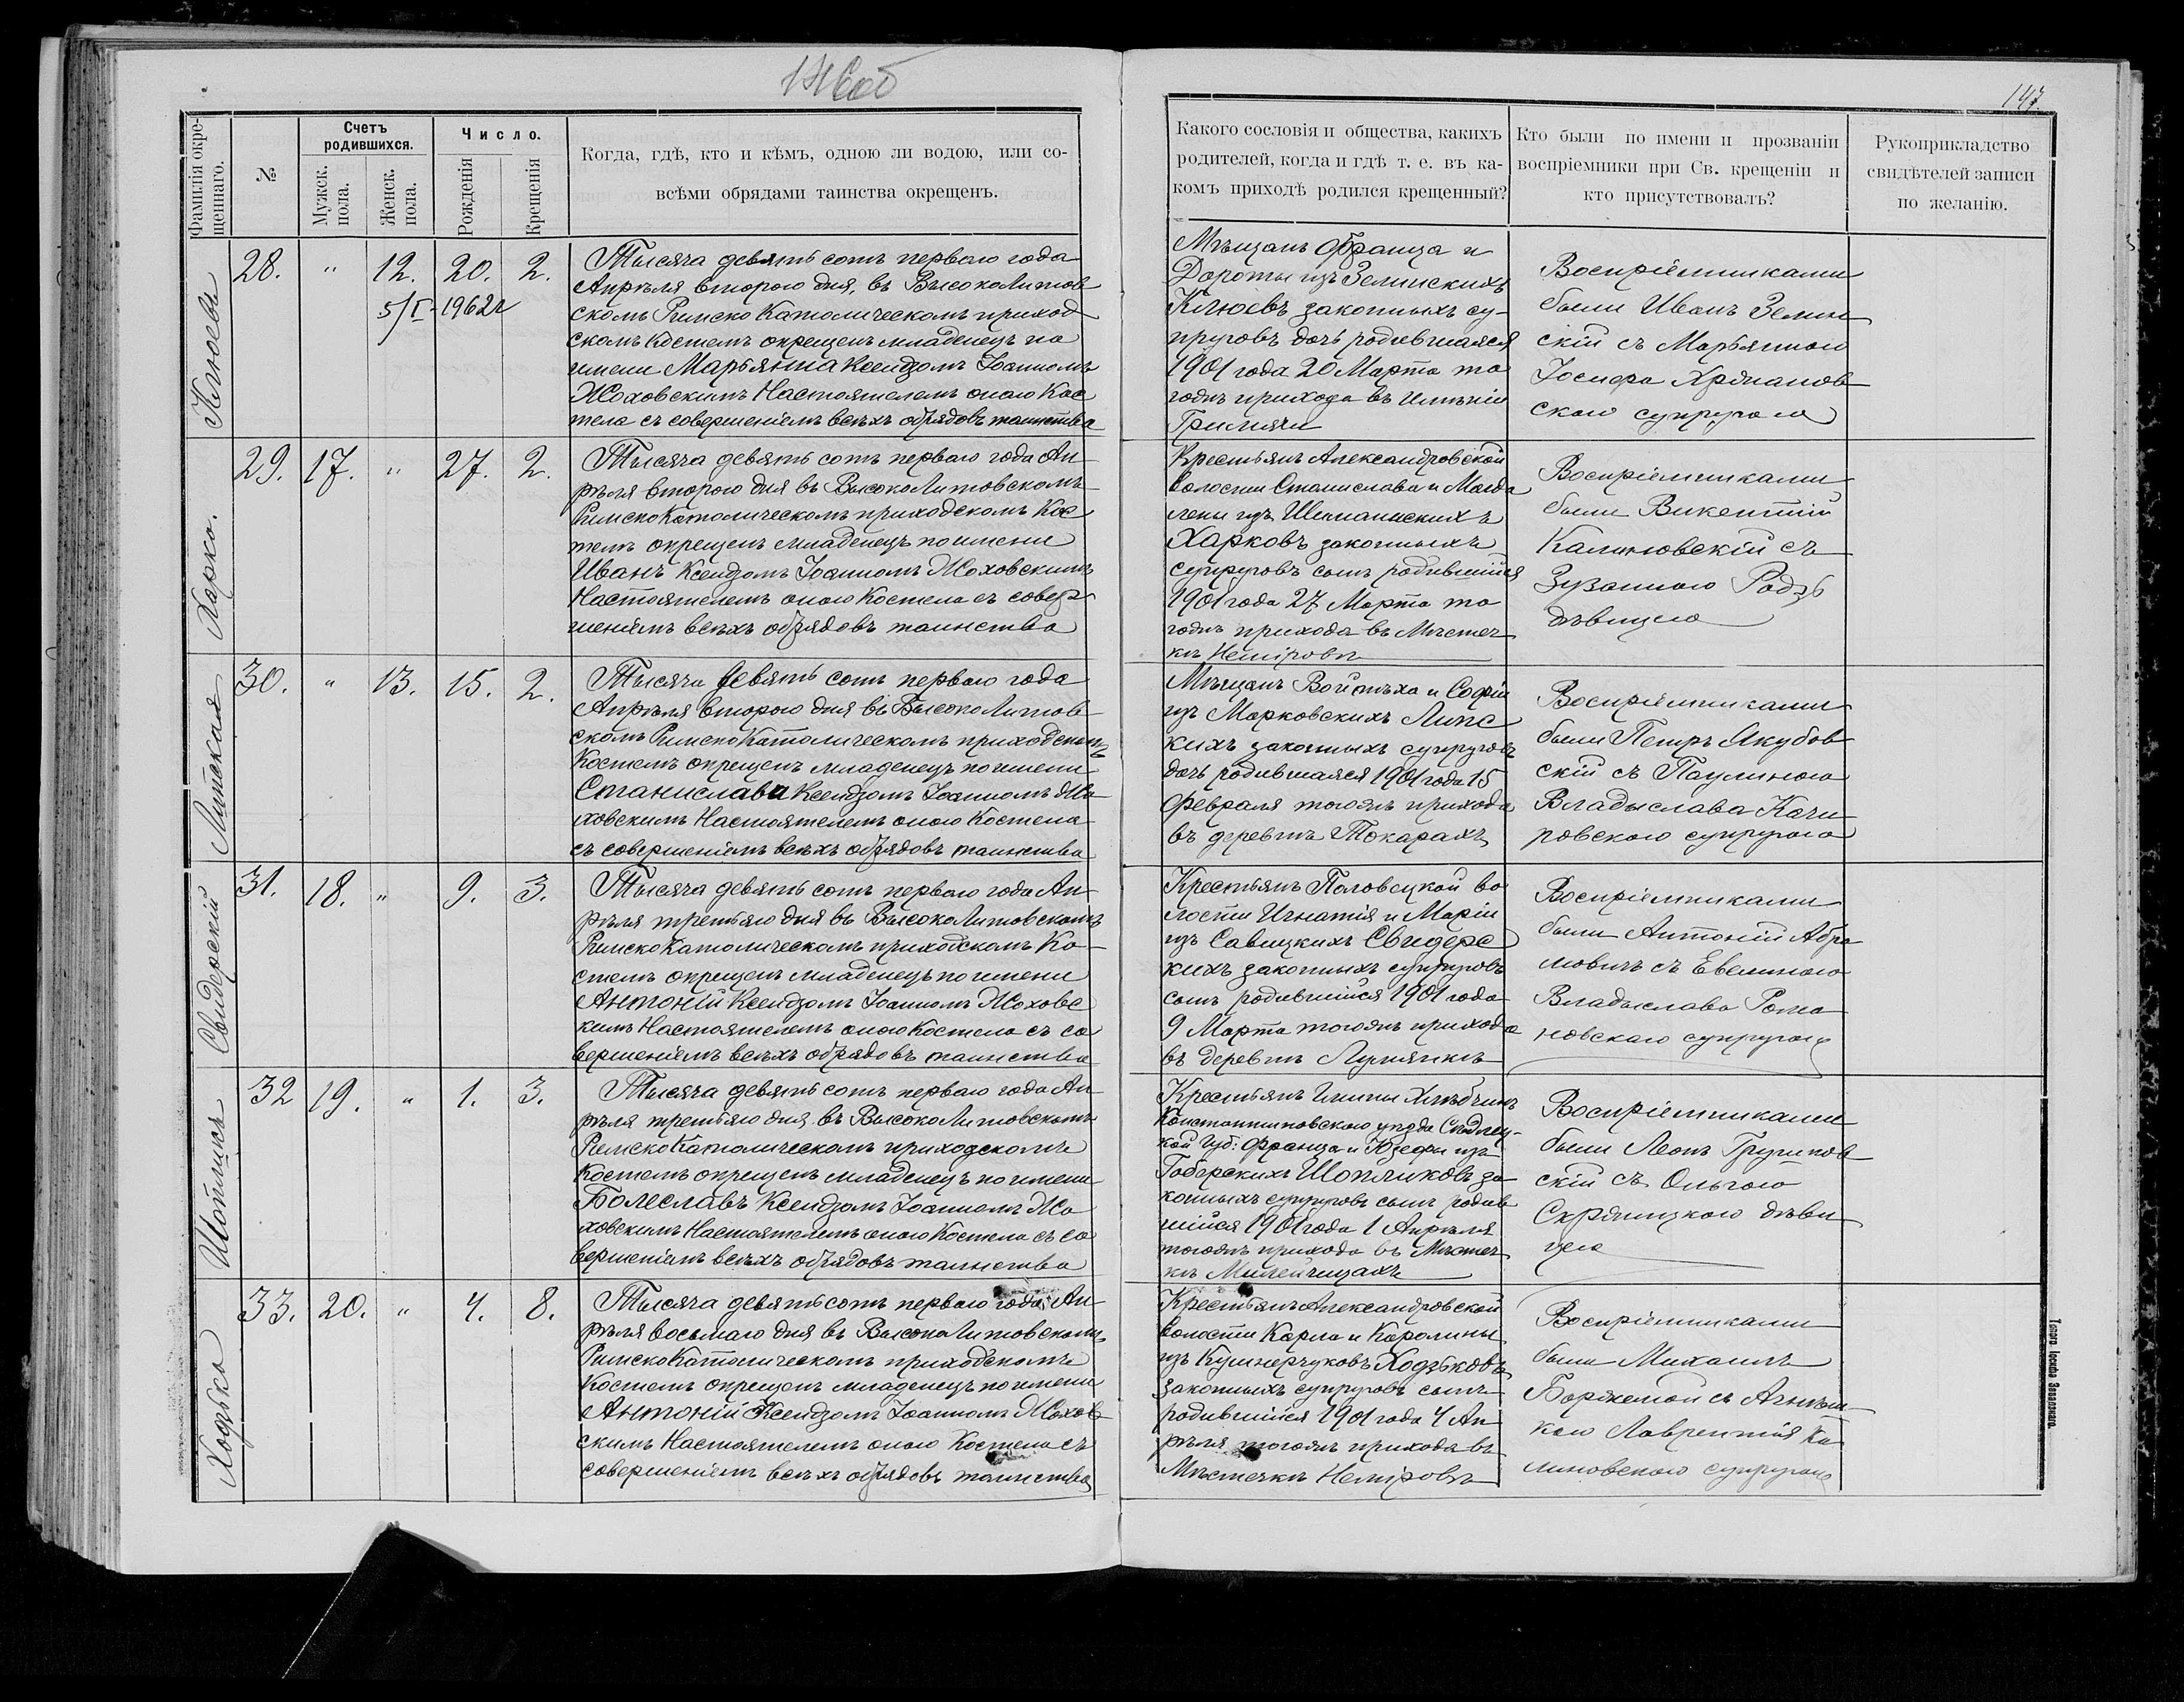 146об
147.
Фамилія окре-
щеннаго.
№
Счетъ
родившихся.
Мужск.
пола.
Женск.
пола.
Число.
Рожденія
Крещенія
Когда, гдѣ, кто и кѣмъ, одною ли водою, или со-
всѣми обрядами таинства окрещенъ.
Какого сословія и общества, какихъ
родителей, когда и гдѣ т. е. въ ка-
комъ приходѣ родился крещенный?
Кто были по имени и прозваніи
воспріемники при Св. крещеніи и
кто присутствовалъ?
Рукоприкладство
свидѣтелей записи
по желанію.
Клюевъ
28. " 12. 20. 2.
5/I-1962г
Тысяча девятьсотъ перваго года
Апрѣля второго дня, въ ВысокоЛитов
скомъ Римско Католическомъ приход
скомъ Костелѣ окрещенъ младенецъ по
имени Марьянна Ксендзомъ Іоанномъ
Жоховскимъ Настоятелемъ оного Кос
тела съ совершеніемъ всѣхъ обрядовъ таинства
Мѣщанъ Франца и
Дороты изъ Зелинскихъ
Клюевъ законныхъ су-
пруговъ дочь родившаяся
1901 года 20 Марта то
гожъ прихода въ Имѣніи
Гримячи
Воспріемниками
были Иванъ Зелин
скій съ Марьянною
Іосифа Хрѣпанов
скаго супругою
Харко.
29. 17. " 27. 2.
Тысяча девятьсотъ перваго года Ап-
рѣля второго дня въ ВысокоЛитовскомъ
РимскоКатолическомъ приходскомъ Кос
телѣ окрещенъ младенецъ по имени
Иванъ Ксендзомъ Іоанномъ Жоховскимъ
Настоятелемъ оного Костела съ совер
шеніемъ всѣхъ обрядовъ таинства
Крестьянъ Александровской
волости Станислава и Магда
лены изъ Шиманскихъ
Харковъ законныхъ
супруговъ сынъ родившійся
1901 года 27 Марта то
гожъ прихода въ Мѣстеч
кѣ Немировѣ
Воспріемниками
были Викентій
Калиновскій съ
Зузанною Радзь
дѣвицею
Липская
30. " 13. 15. 2.
Тысяча девятьсотъ перваго года
Апрѣля второго дня въ ВысокоЛитов
скомъ РимскоКатолическомъ приходскомъ
Костелѣ окрещенъ младенецъ по имени
Станислава Ксендзомъ Іоанномъ Жо
ховскимъ Настоятелемъ оного Костела
съ совершеніемъ всѣхъ обрядовъ таинства
Мѣщанъ Войтѣха и Софіи
изъ Марковскихъ Липс
кихъ законныхъ супруговъ
дочь родившаяся 1901 года 15
Февраля тогожъ прихода
въ деревнѣ Токарахъ
Воспріемниками
были Петръ Якубов
скій съ Паулиною
Владыслава Качи
ровского супругою
Свидерскій
31. 18. " 9. 3.
Тысяча девятьсотъ перваго года Ап-
рѣля третьяго дня въ ВысокоЛитовскомъ
РимскоКатолическомъ приходскомъ Ко-
стелѣ окрещенъ младенецъ по имени
Антоній Ксендзомъ Іоанномъ Жоховс
кимъ Настоятелемъ оного Костела съ со
вершеніемъ всѣхъ обрядовъ таинства
Крестьянъ Половецкой во
лости Игнатія и Маріи
изъ Савицкихъ Свидерс
кихъ законныхъ супруговъ
сынъ родившійся 1901 года
9 Марта тогожъ прихода
въ деревнѣ
Воспріемниками
были Антоній Абра
мовичъ съ Евелиною
Владыслава Рома
новскаго супругою
32 19. " 1. 3.
Тысяча девятьсотъ перваго года Ап-
рѣля третьяго дня въ ВысокоЛитовскомъ
РимскоКатолическомъ приходскомъ
Костелѣ окрещенъ младенецъ по имени
Болеславъ Ксендзомъ Іоанномъ Жо
ховскимъ Настоятелемъ оного Костела съ со
вершеніемъ всѣхъ обрядовъ таинства
Крестьянъ Гмины Хлѣбчинъ
Константиновского уѣзда Сѣдлец-
кой Губ: Франца и Юзефы изъ
законныхъ супруговъ сынъ родив
шійся 1901 года 1 Апрѣля
тогожъ прихода въ Мѣстеч
кѣ Милейчицахъ
Воспріемниками
были Леонъ
скій съ Ольгою
дѣви
цею
Ходзька
33. 20. " 4. 8.
Тысяча девятьсотъ перваго года Ап-
рѣля восьмаго дня въ ВысокоЛитовскомъ
РимскоКатолическомъ приходскомъ
Костелѣ окрещенъ младенецъ по имени
Антоній Ксендзомъ Іоанномъ Жохов
скимъ Настоятелемъ оного Костела съ
совершеніемъ всѣхъ обрядовъ таинства
Крестьянъ Александровской
волости Карла и Каролины
изъ Кушнерчуковъ Ходзьковъ
законныхъ супруговъ сынъ
родившійся 1901 года 4 Ап
рѣля тогожъ прихода въ
Мѣстечкѣ Немировѣ
Воспріемниками
были Михаилъ
съ Агнѣш
кою Лаврентія Ка
линовского супругою